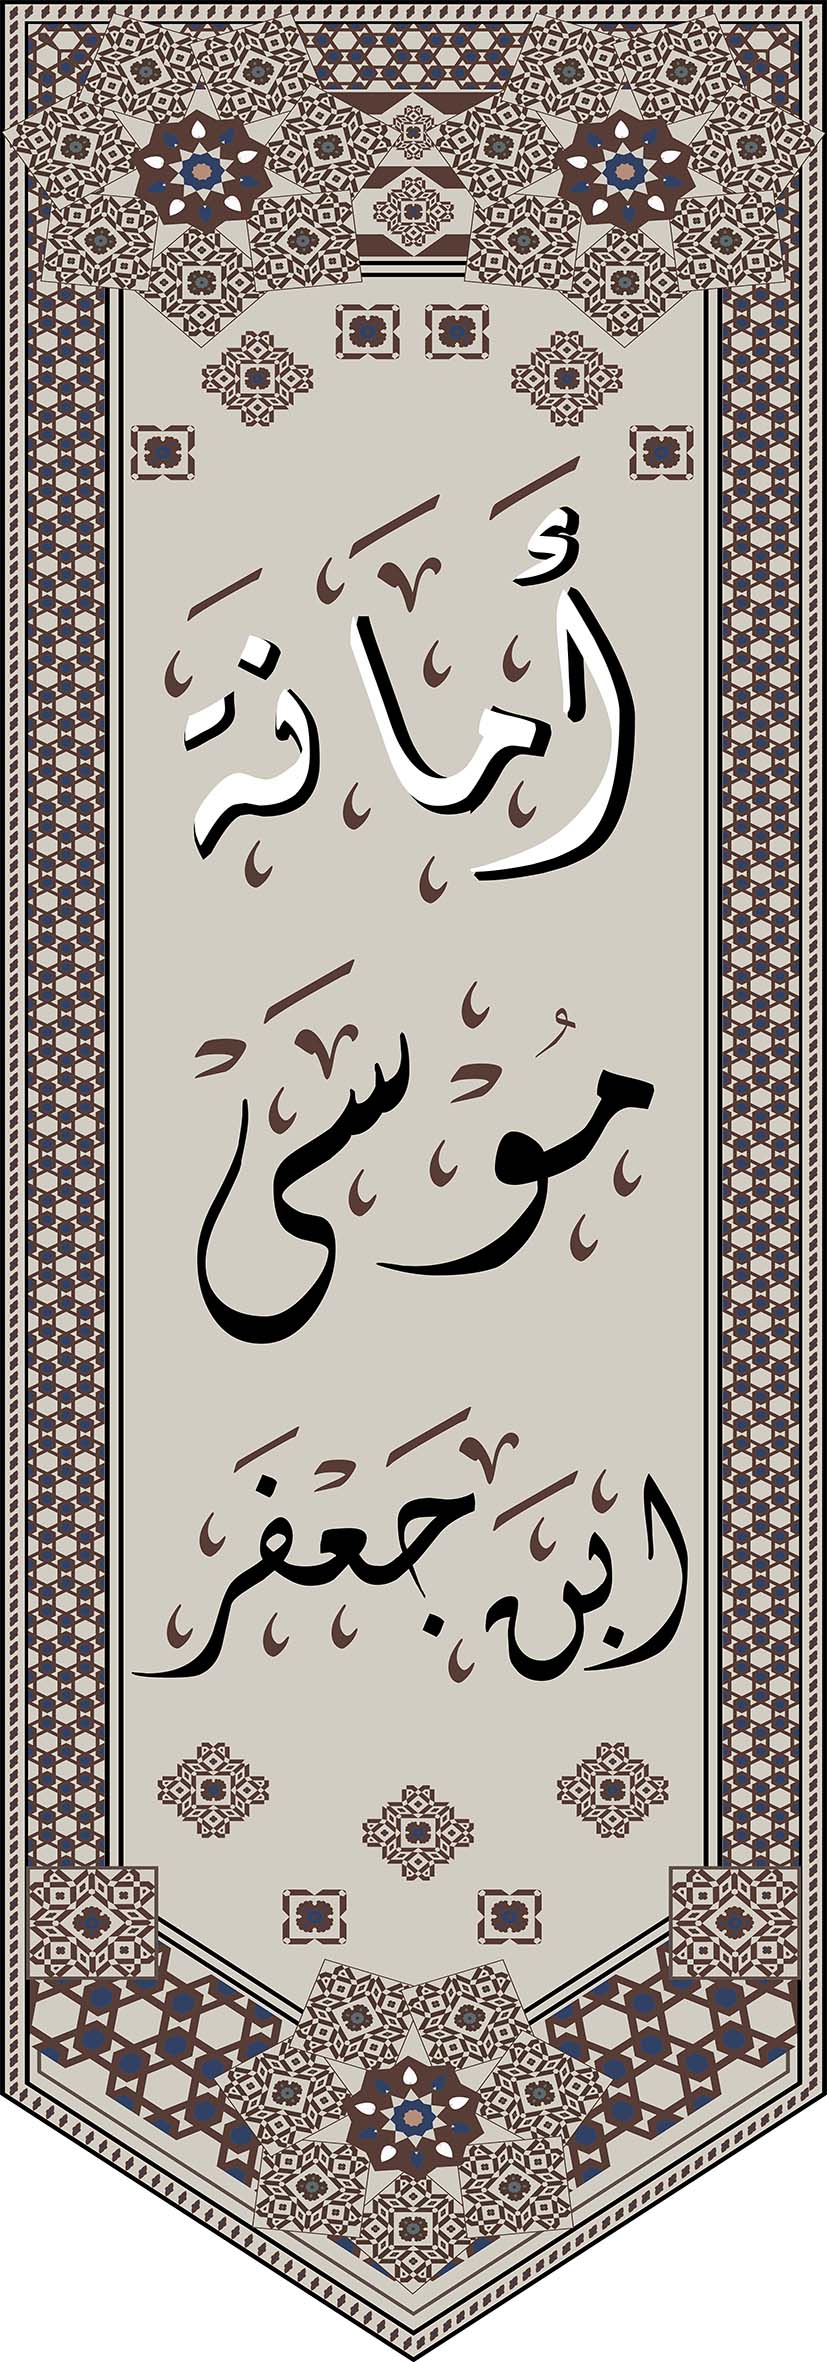 أَمَانَة
مُوْسَىْ
ابنَ جَعْفَر